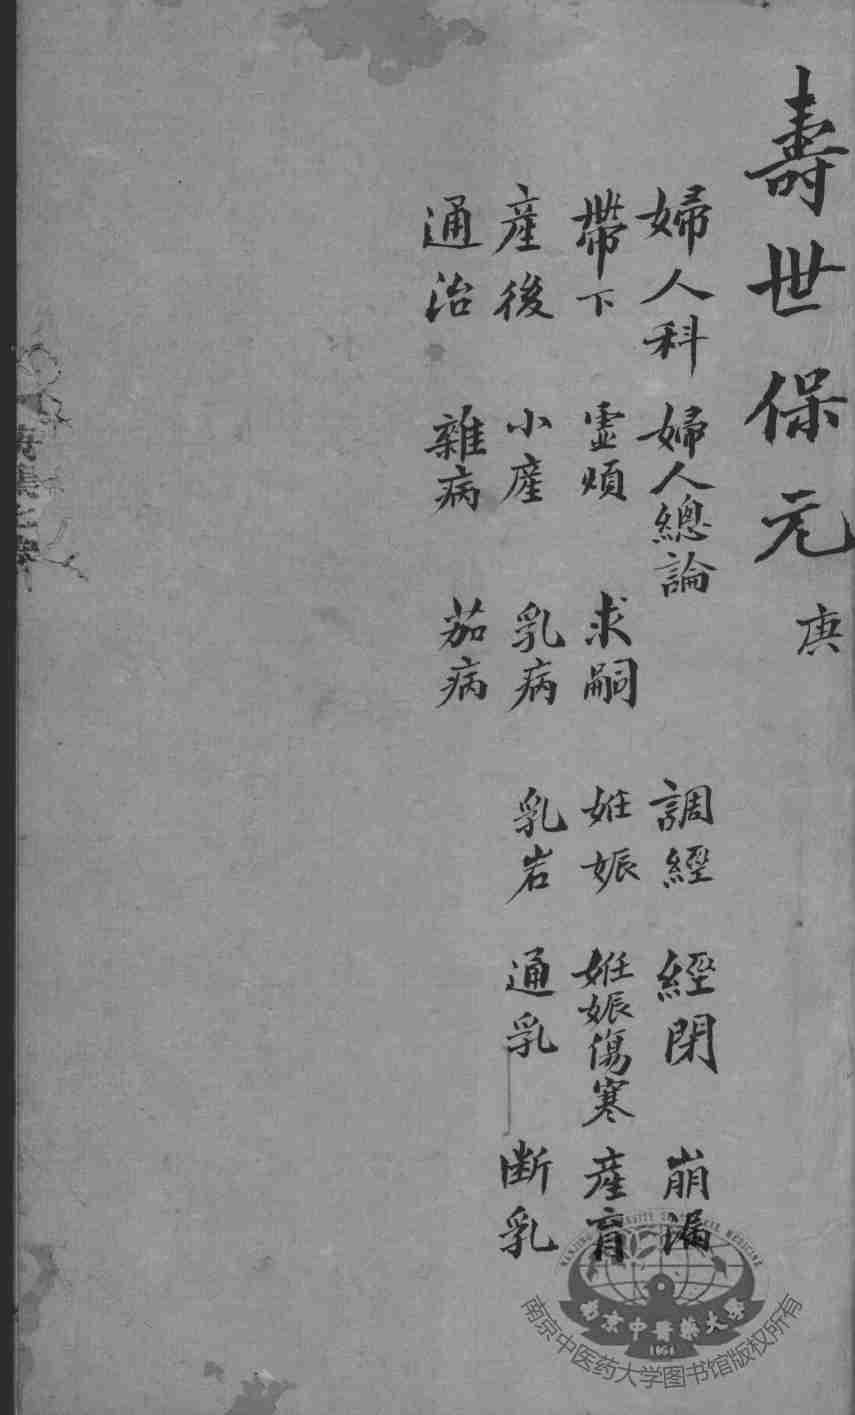 壽世保元 庚
婦人科 婦人總論 調經 經閉 崩漏
帶下 虛煩 求嗣 姙娠 姙娠傷寒 產育
產後 小產 乳病 乳岩 通乳 断乳
通治 雜病 茄病
南京中医药大学图书馆版权所有
南京中医药大学
1954